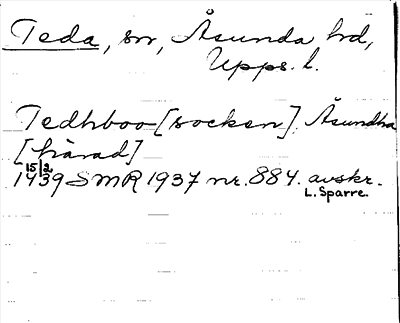 Teda, sn, Åsunda hd,
Upps. l.
Tedhboo [socken] Åsundha
[härad]
15/2
1439 SMR 1937 nr. 884. avskr.
L. Sparre.